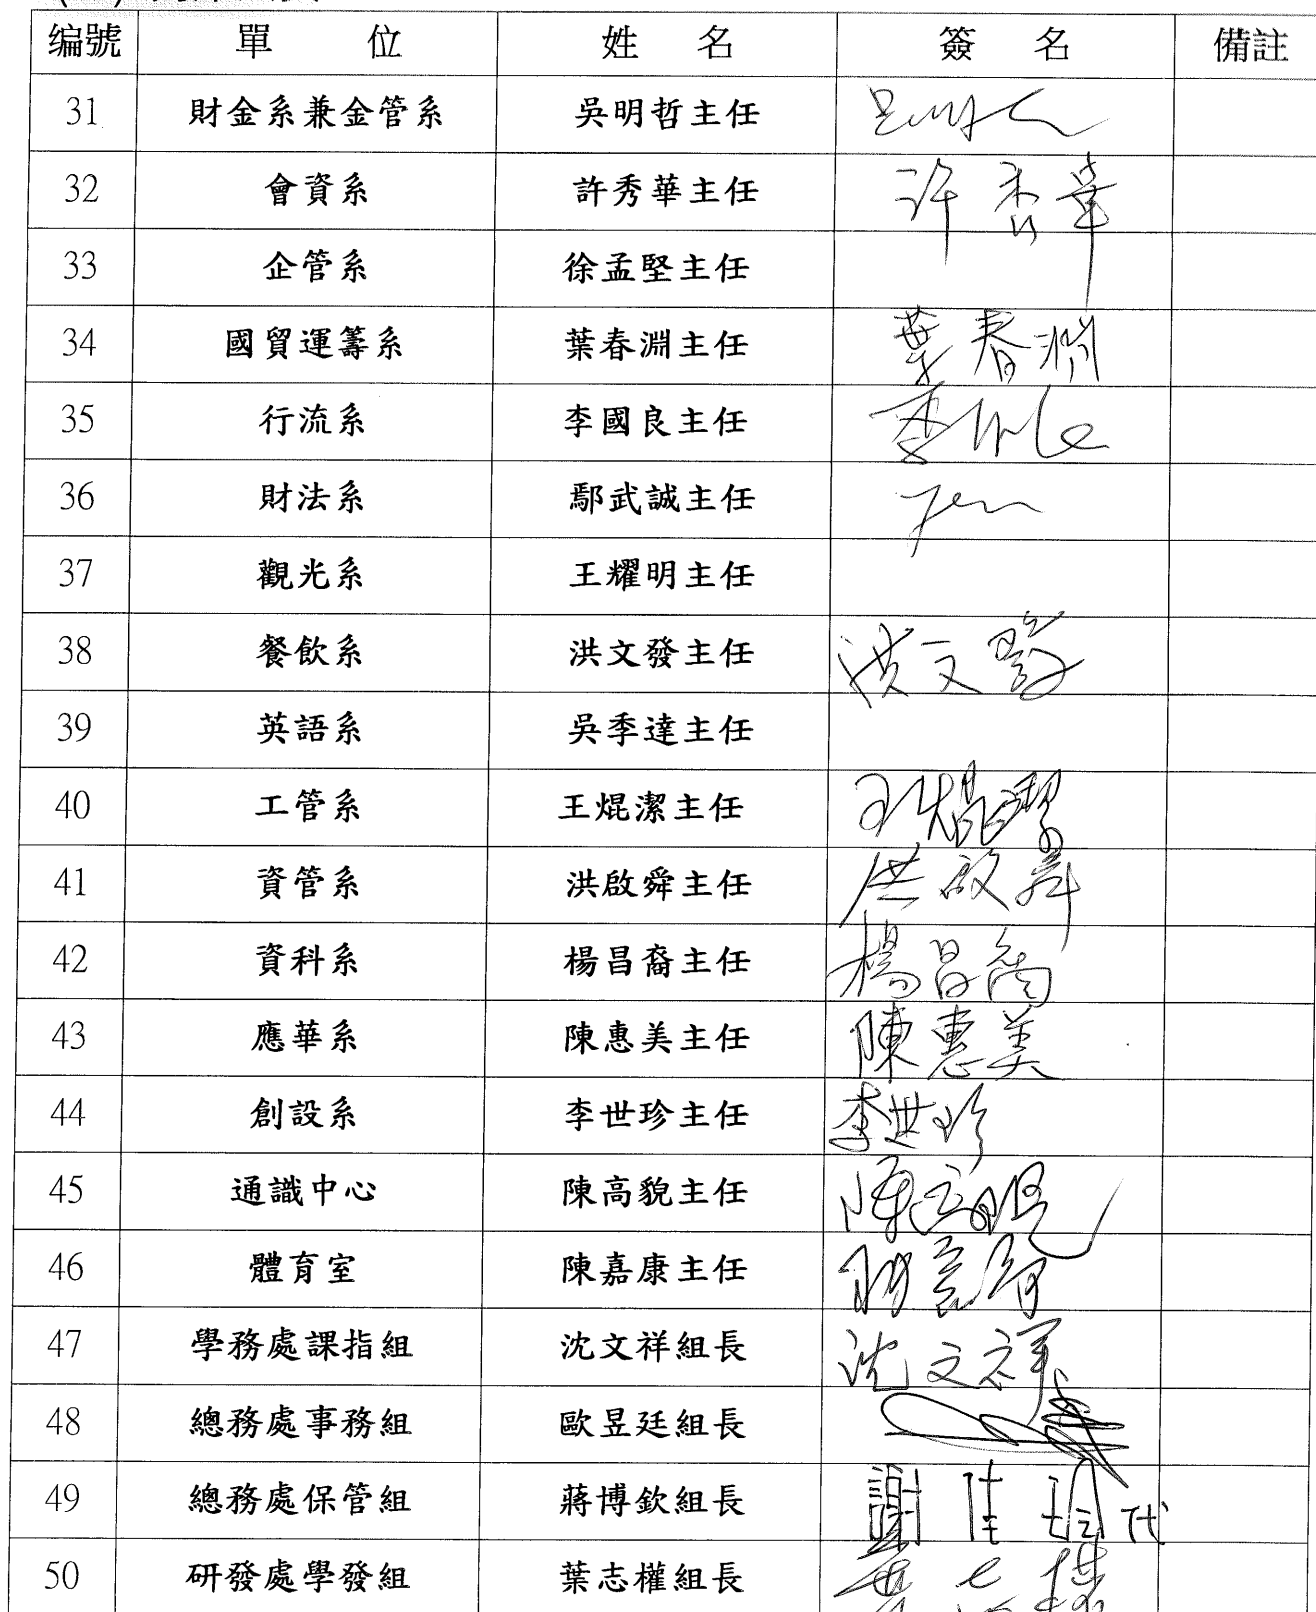 編號 單 位 姓 名 簽 名 備註
31 財金系兼金管系 吳明哲主任
32 會資系 許秀華主任 許秀華
33 企管系 徐孟堅主任
34 國貿運籌系 葉春淵主任 葉春淵
35 行流系 李國良主任
36 財法系 鄢武誠主任
37 觀光系 王耀明主任
38 餐飲系 洪文發主任 洪文發
39 英語系 吳季達主任
40 工管系 王焜潔主任 王焜潔
41 資管系 洪啟舜主任 洪啟舜
42 資科系 楊昌裔主任 楊昌裔
43 應華系 陳惠美主任 陳惠美
44 創設系 李世珍主任 李世珍
45 通識中心 陳高貌主任
46 體育室 陳嘉康主任
47 學務處課指組 沈文祥組長 沈文祥
48 總務處事務組 歐昱廷組長
49 總務處保管組 蔣博欽組長 謝佳 代
50 研發處學發組 葉志權組長